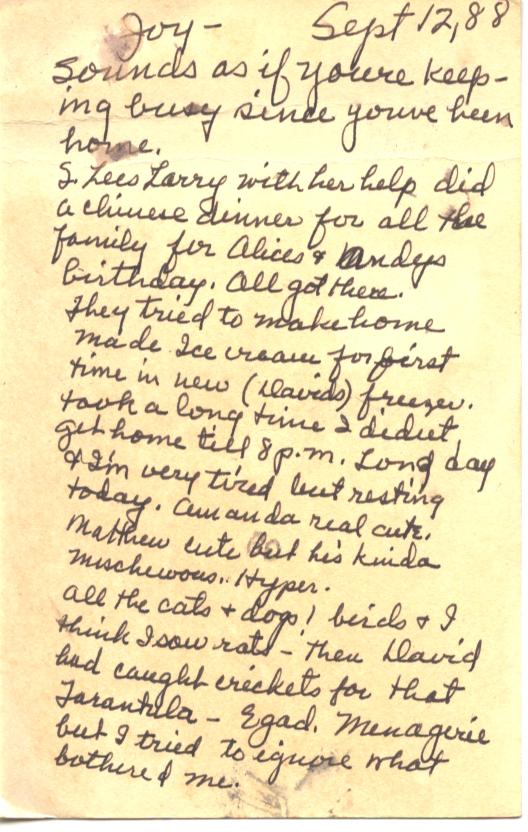 Joy- Sept 12, 88
Sounds as if youre keep-
ing busy since youve been
home.
S. Lees Larry with her help did
a chinese dinner for all the
family for Alices & Andys
birthday. All got there.
They tried to make home
made Ice cream for first
time in new (Davids) freezer.
took a long time I didnt
get home till 8 p.m. Long day
& I'm very tired but resting
today. Amanda real cute.
Matthew cute but his kinda
mischevous.. Hyper.
all the cats & dogs! birds & I
think I sow rats - then David
had caught crickets for that
Tarantula - Egad. Menagerie
but I tried to ignore what
bothered me.